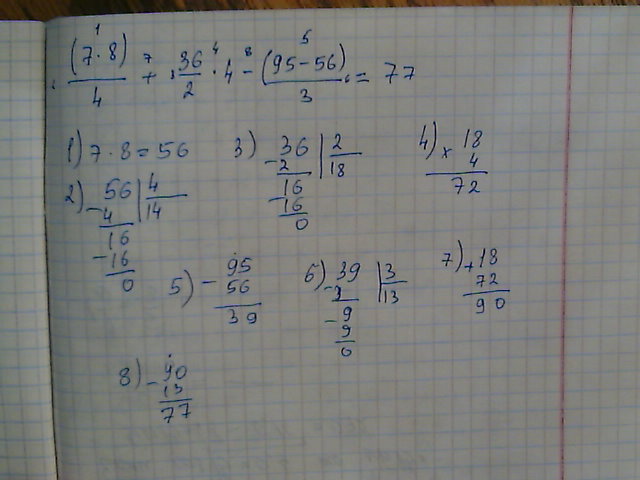 1 4 5
(7·8)/4 + 7 36/2 · 4 - 8 (95-56)/3 = 77
1) 7·8=56
2) 56 | 4
- 4 | 14
16
- 16
0
3) 36 | 2
- 2 | 18
16
- 16
0
4) 18
× 4
72
5) 95
- 56
39
6) 39 | 3
- 3 | 13
9
- 9
0
7) 18
+ 72
90
8) 90
- 13
77